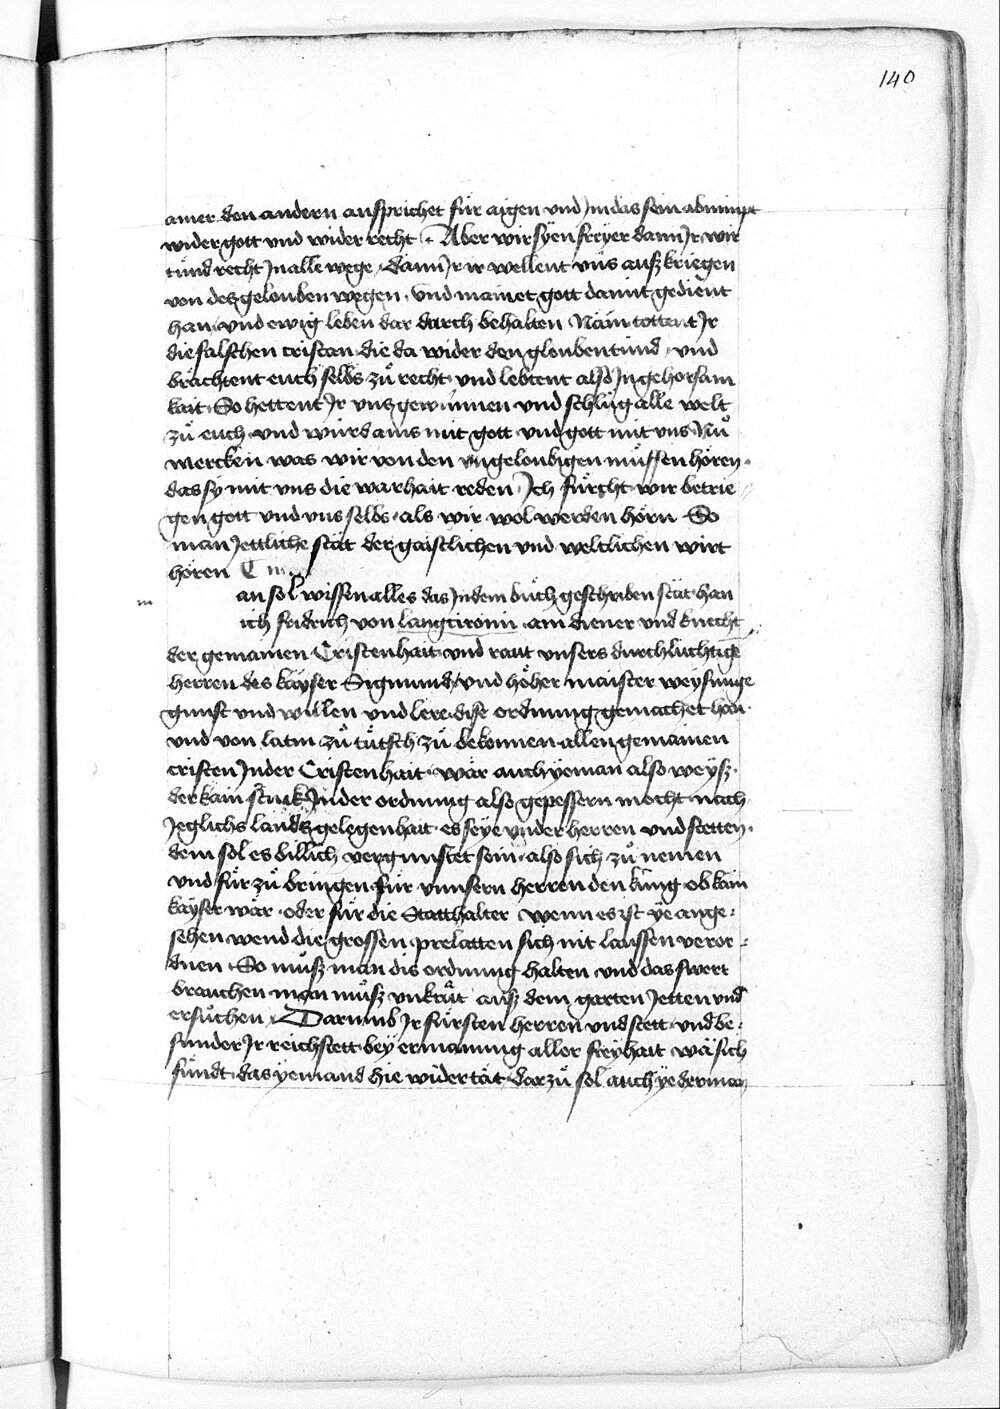 140
ainer den andern ansprichet für aigen vnd Jm das sein abnimpt
wider gott vnd wider recht Aber wir syen freyer dann Jr wir
tund recht Jn alle wege dann Jr ir wellent vns auß kriegen
von des gelouben wegen vnd mainet gott damit gedient
han vnd ewig leben dar durch behalten Nain tottent Jr
die falschen cristan die da wider den glouben tund vnd
brächtent euch selbs zů recht vnd lebtent also Jn gehorsam
kait So hettent Jr vns gewunnen vnd schlüg alle welt
zů euch vnd würd ains mit gott vnd gott mit vns Nů
mercken was wir von den vngeloubigen müssen hören
das sy mit vns die warhait reden Jch fürcht wir betrie
gen gott vnd vns selbs als wir wol werden hörn So
man Jettliche stät der gaistlichen vnd weltlichen wirt
hören
m
an sol wissen alles das Jn dem bůch geschriben stät han
ich fridrich von langcironii ain diener vnd knecht
der gemainen Cristenhait vnd raut vnsers durchluchtige
herren des kayser Sigmund vnd höher maister weysunge
gunst vnd willen vnd lere dise ordnung gemachet han
vnd von latin zů tütsch zů bekonnen allen gemainen
cristen Jn der Cristenhait wär auch yeman also weyß
der kain stuck Jn der ordnung also gepessern mocht nach
Jeglichs lands gelegenhait es seye vnder herren vnd stetten
dem sol es billich vergunstet sein also sich zů nemen
vnd für zů bringen für vnnsern herren den küng ob kain
kayser wär oder für die Statthalter wenn es ist ye ange
sehen wend die grossen prelatten sich nit laussen veror
dnen So můß man dis ordnung halten vnd das swert
brauchen man můß vnkrut auß dem garten Jetten vnd
ersůchen Darumb Jr fürsten herren vnd stett vnd be
sunder Jr reichstett bey ermanung aller freyhait wä sich
fündt das yemand hie wider tät dar zů sol auch yederman